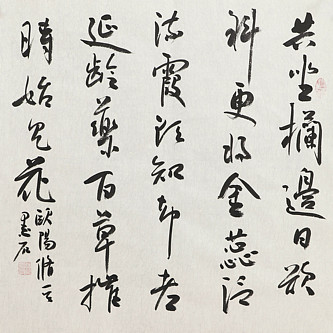 共坐欄邊日欲
斜更將金蕊泛
流霞欲知却老
延齡藥百草摧
時始見花
歐陽脩
墨石